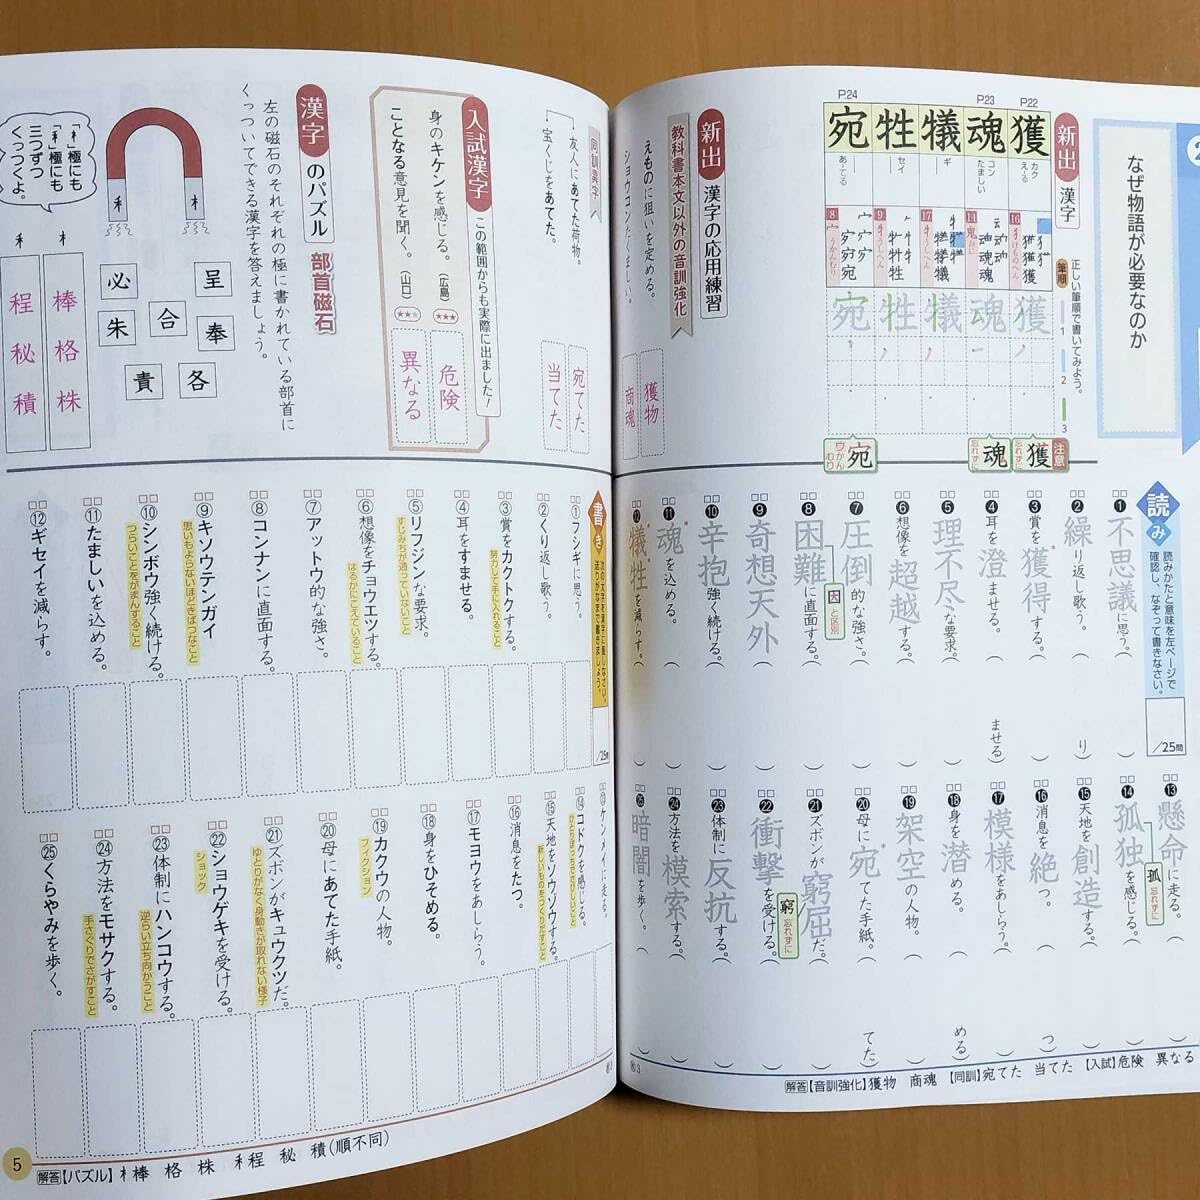 なぜ物語が必要なのか
新出 漢字
正しい筆順で書いてみよう。
筆順 1 2 3
P22
P23
P24
獲 魂 犠 牲 宛
カク
え-る
コン
たましい
ギ
セイ
あ-てる
16 けものへん
14 鬼 おに
17 うしへん
9 うしへん
8 うかんむり
獲 魂 犠 牲 宛
注意
獲 忘れずに
魂 忘れずに
宛 ウかんむり
新出 漢字の応用練習
教科書本文以外の音訓強化
えものに狙いを定める。
ショウコンたくましい。
獲物
商魂
同訓異字
友人にあてた荷物。
宝くじをあてた。
宛てた
当てた
入試漢字 この範囲からも実際に出ました!
身のキケンを感じる。(広島)★★★
ことなる意見を聞く。(山口)★★☆
危険
異なる
漢字のパズル 部首磁石
左の磁石のそれぞれの極に書かれている部首に
くっついてできる漢字を答えましょう。
「木」極にも
「禾」極にも
三つずつ
くっつくよ。
木 禾
呈 奉 各 合 責 必 朱
木 棒 格 株
禾 程 秘 積
読み 読みかたと意味を左ページで
確認し、なぞって書きなさい。
/25問
❶不思議に思う。( )
❷繰り返し歌う。( り)
❸賞を獲得する。( )
❹耳を澄ませる。( ませる)
❺理不尽な要求。( )
❻想像を超越する。( )
❼圧倒的な強さ。( )
❽困難に直面する。( )
因と区別
❾奇想天外( )
❿辛抱強く続ける。( )
⓫魂を込める。( )
⓬犠牲を減らす。( )
⓭懸命に走る。( )
⓮孤独を感じる。( )
孤 忘れずに
⓯天地を創造する。( )
⓰消息を絶つ。( つ)
⓱模様をあしらう。( )
⓲身を潜める。( める)
⓳架空の人物。( )
⓴母に宛てた手紙。( てた)
㉑ズボンが窮屈だ。( )
窮 忘れずに
㉒衝撃を受ける。( )
㉓体制に反抗する。( )
㉔方法を模索する。( )
㉕暗闇を歩く。( )
解答【音訓強化】獲物 商魂 【同訓】宛てた 当てた 【入試】危険 異なる
書き 次の文字を漢字に直しなさい。
送りがなまで書きましょう。
/25問
①フシギに思う。
②くり返し歌う。
③賞をカクトクする。
努力して手に入れること
④耳をすませる。
⑤リフジンな要求。
すじみちが通っていないこと
⑥想像をチョウエツする。
はるかにこえていること
⑦アットウ的な強さ。
⑧コンナンに直面する。
⑨キソウテンガイ
思いもよらないほどきばつなこと
⑩シンボウ強く続ける。
つらいことをがまんすること
⑪たましいを込める。
⑫ギセイを減らす。
⑬ケンメイに走る。
⑭コドクを感じる。
ひとりぼっちでさびしいこと
⑮天地をソウゾウする。
新しいものをつくりだすこと
⑯消息をたつ。
⑰モヨウをあしらう。
⑱身をひそめる。
⑲カクウの人物。
フィクション
⑳母にあてた手紙。
㉑ズボンがキュウクツだ。
ゆとりがなく身動きが取れない様子
㉒ショウゲキを受ける。
ショック
㉓体制にハンコウする。
逆らい立ち向かうこと
㉔方法をモサクする。
手さぐりでさがすこと
㉕くらやみを歩く。
5
解答【パズル】木棒 格 株 禾程 秘 積(順不同)